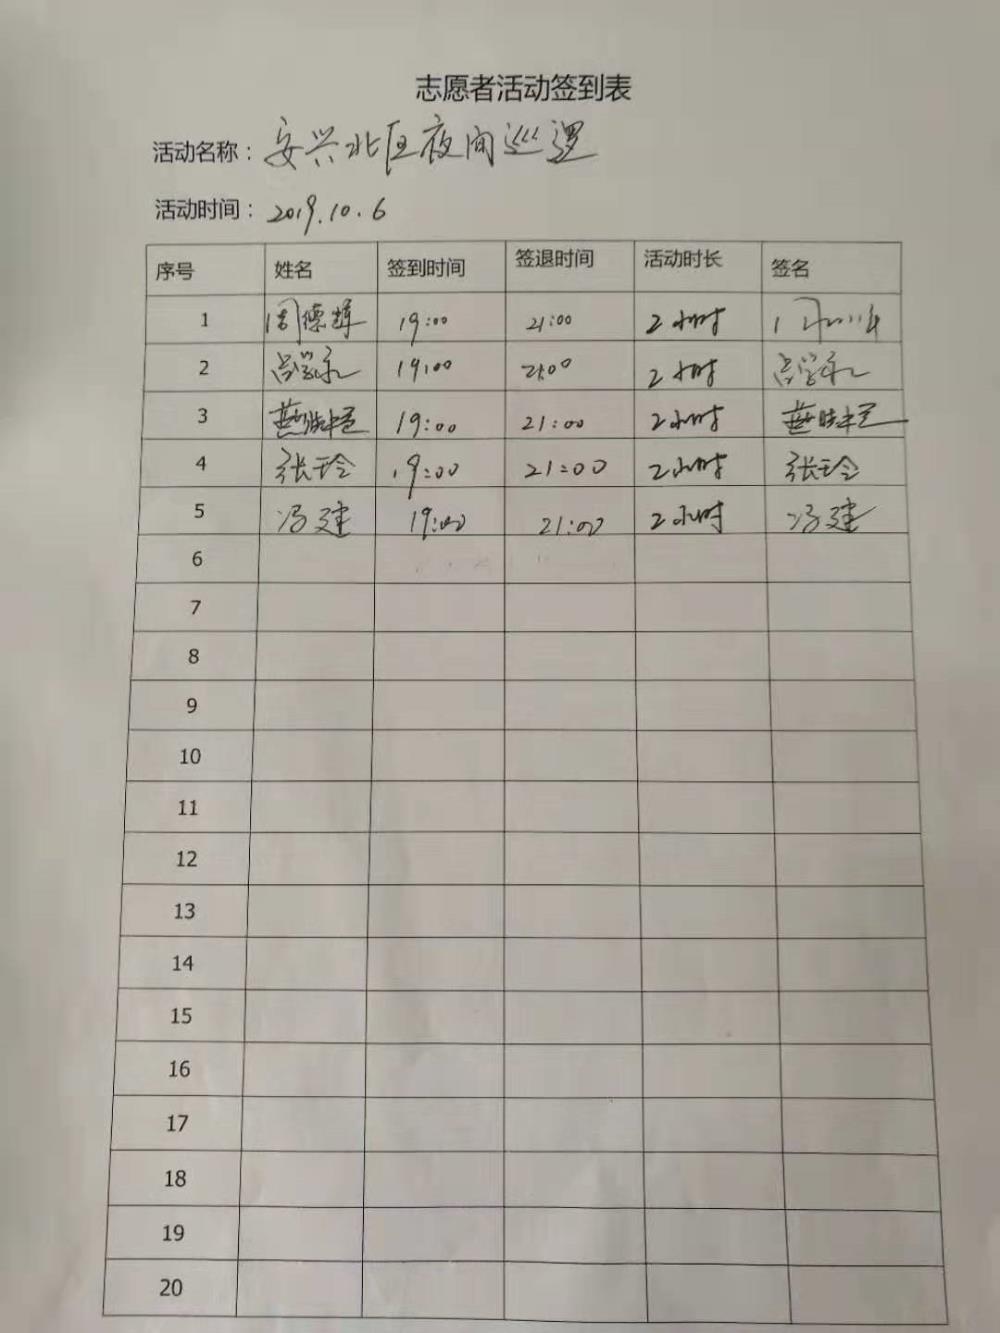 志愿者活动签到表
活动名称：安兴北区夜间巡逻
活动时间：2019.10.6
序号 姓名 签到时间 签退时间 活动时长 签名
1 周德辉 19:00 21:00 2小时
2 吕学永 19:00 21:00 2小时 吕学永
3 19:00 21:00 2小时
4 张玲 19:00 21:00 2小时 张玲
5 冯建 19:00 21:00 2小时 冯建
6
7
8
9
10
11
12
13
14
15
16
17
18
19
20